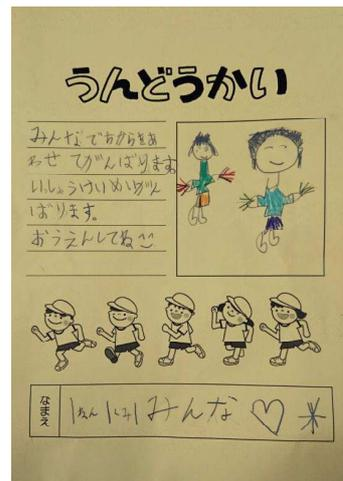 うんどうかい
みんなでちからをあ
わせてがんばります。
いっしょうけいめいがん
ばります。
おうえんしてね
なまえ
1ねん1くみみんな